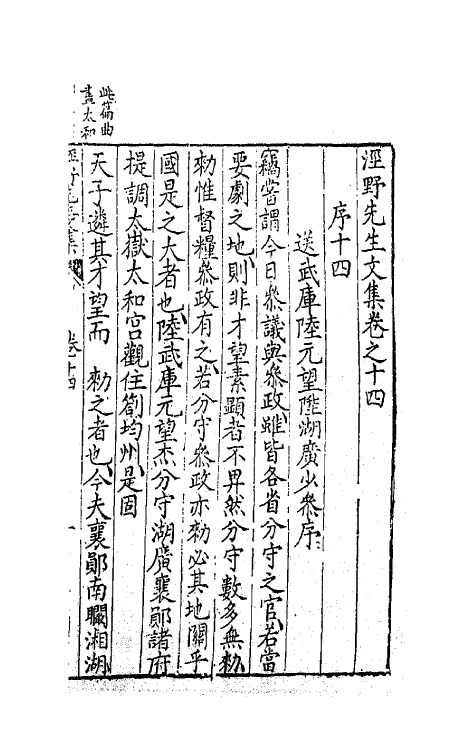 涇野先生文集卷之十四
序十四
送武庫陸元望陞湖廣少叅序
竊嘗謂今日叅議與叅政雖皆各省分守之官若當
要劇之地則非才望素顯者不畀然分守數多無勑
勑惟督糧叅政有之若分守叅政亦勑必其地關乎
國是之大者也陸武庫元望杰分守湖廣襄鄖諸府
提調太嶽太和宮觀住箚均州是固
天子遴其才望而 勑之者也今夫襄鄖南矙湘湖
卷十四
此篇曲
盡太和